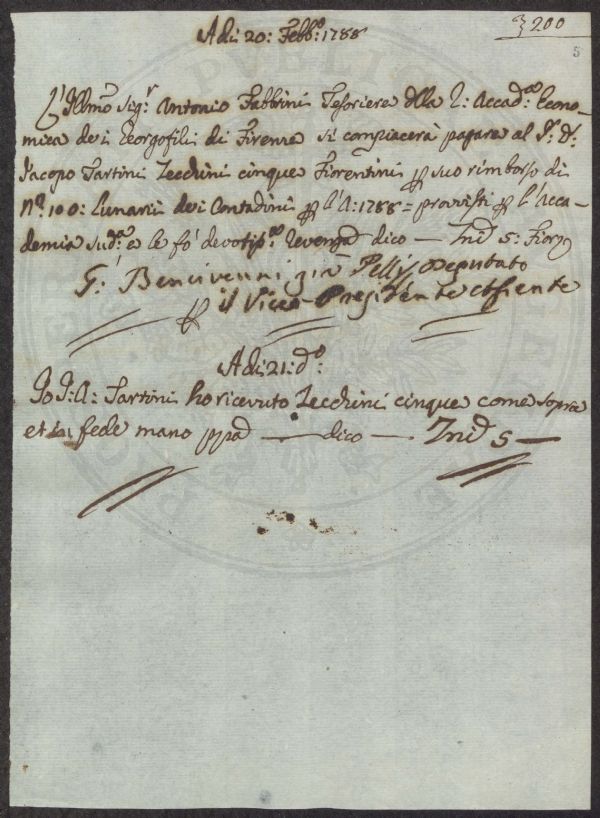 Adì 20: Febb:º 1788
200
5
L'Illmo Sig:r Antonio Fabbrini Tesoriere della R: Accad:a Econo-
mica dei Georgofili di Firenze si compiacerà pagare al S:r D:r
Jacopo Tartini Zecchini cinque Fiorentini p suo rimborso di
Nº 100: Lunarii dei Contadini p l'A: 1788 = provvisti p l'Acca-
demia sud:a e le fò devotis:º dico — Zni 5: Fior
G: Bencivenni già Pelli, Deputato
p il Vice-Presidente assente
Adì 21: dº:
Io J: A: Tartini ho ricevuto Zecchini cinque come sopra
et in fede mano ppa — dico — Zni 5 —